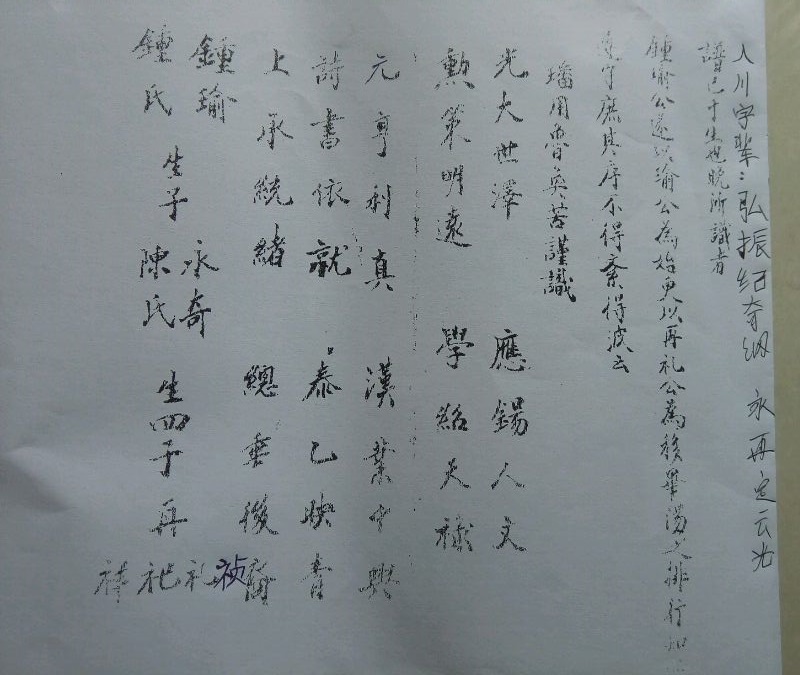 入川字辈：弘振绍奇纲 永再定云光
譜已于生也晚所識者
鍾瑜公遂以瑜公為始更以再礼公為
遵守庶其序不得紊得次云
璠用魯奐苦謹識
光大世澤 應錫人文
勲策明遠 學紹天祿
元亨利真 漢業中興
詩書依就 泰乙映青
上承統緒 總垂後裔
鍾瑜 承奇
鍾氏 生子 陳氏 生四子 再禎 礼 祀 祥